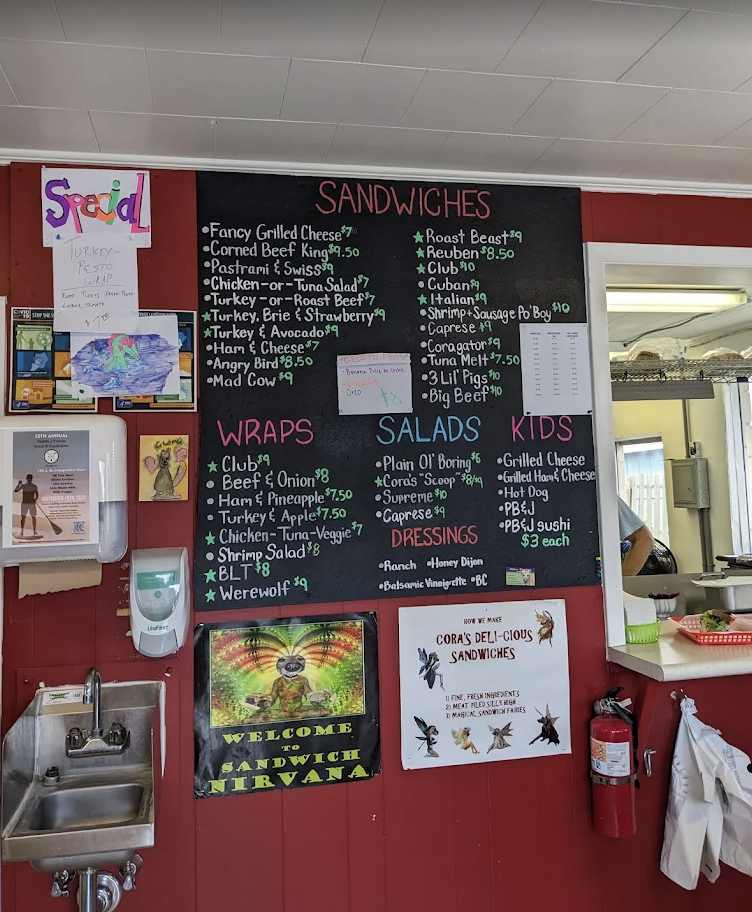 Special
TURKEY-
PESTO
WRAP
$7.50
SANDWICHES
•Fancy Grilled Cheese $7
•Corned Beef King $9.50
•Pastrami & Swiss $9
•Chicken-or-Tuna Salad $7
•Turkey-or-Roast Beef $7
★Turkey, Brie & Strawberry $9
★Turkey & Avocado $9
•Ham & Cheese $7
•Angry Bird $8.50
•Mad Cow $9
★Roast Beast $9
★Reuben $8.50
★Club $10
•Cuban $9
★Italian $9
•Shrimp+Sausage Po'Boy $10
•Caprese $9
•Coragator $9
•Tuna Melt $7.50
•3 Lil' Pigs $10
•Big Beef $10
GELATO PINTS
$8
WRAPS
★Club $9
•Beef & Onion $8
•Ham & Pineapple $7.50
•Turkey & Apple $7.50
★Chicken-Tuna-Veggie $7
•Shrimp Salad $8
★BLT $8
★Werewolf $9
SALADS
•Plain Ol' Boring $6
★Cora's "Scoop" $8/9
•Supreme $10
•Caprese $9
DRESSINGS
•Ranch •Honey Dijon
•Balsamic Vinaigrette •BC
KIDS
•Grilled Cheese
•Grilled Ham & Cheese
•Hot Dog
•PB&J
•PB&J sushi
$3 each
12TH ANNUAL
UniFirst
WELCOME
TO
SANDWICH
NIRVANA
HOW WE MAKE
CORA'S DELI-CIOUS
SANDWICHES
1) FINE, FRESH INGREDIENTS
2) MEAT PILED SILLY HIGH
3) MAGICAL SANDWICH FAIRIES